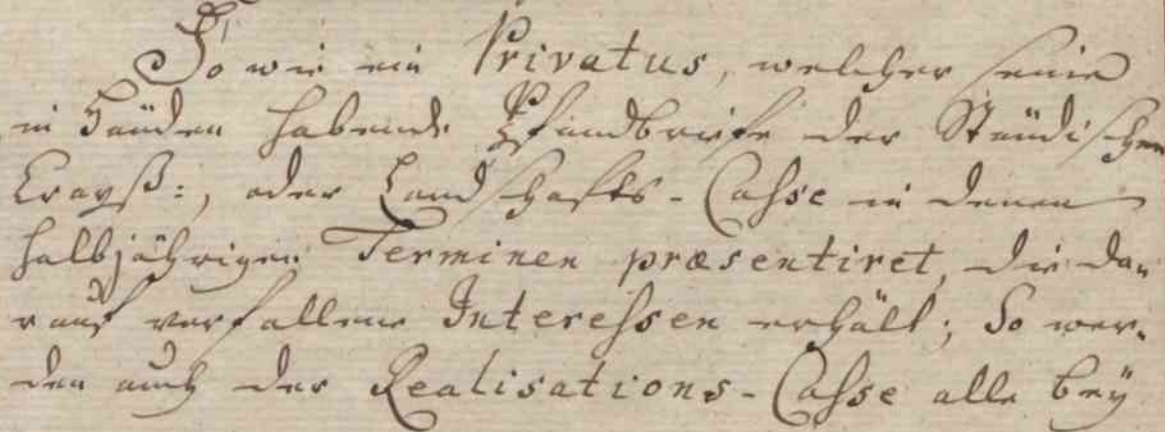 So wie ein Privatus, welcher seine
in Händen habende Pfandbriefe der Ständischen
Crayß:, oder Landschafts-Casse in denen
halbjährigen Terminen præsentiret, die da-
rauf verfallene Interessen erhält; So wer-
den auch der Realisations-Casse alle bey